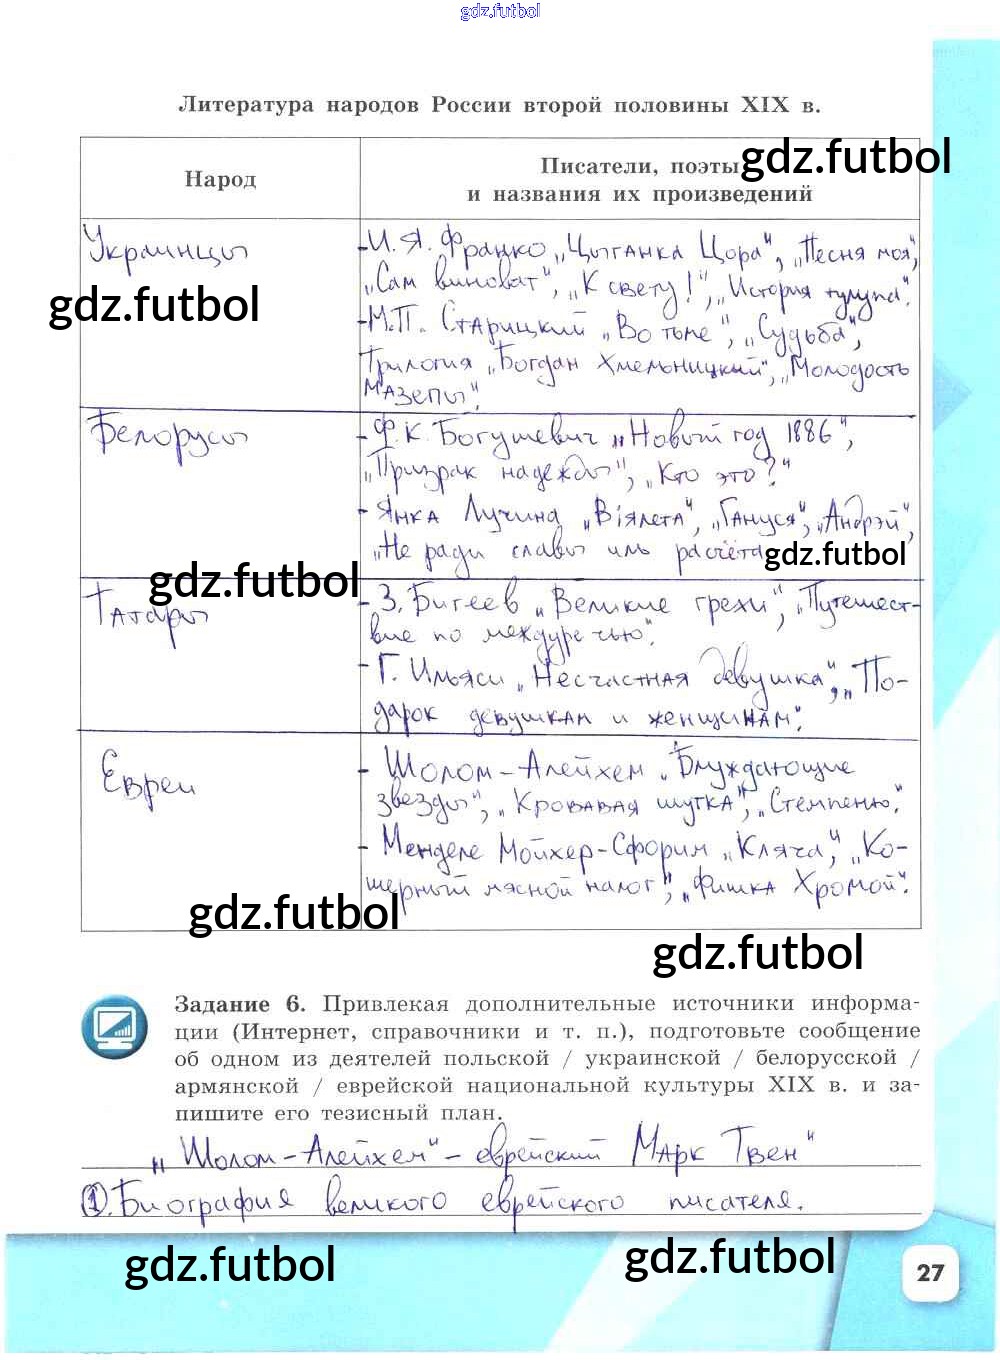 gdz.futbol
Литература народов России второй половины XIX в.
Народ
Писатели, поэты
и названия их произведений
gdz.futbol
Украинцы
-И. Я. Франко „Цыганка Цора", „Песня моя",
„Сам виноват", „К свету!", „История тулупа".
gdz.futbol
-М.П. Старицкий „Во тьме", „Судьба",
трилогия „Богдан Хмельницкий", „Молодость
Мазепы".
Белорусы
- Ф.К. Богушевич „Новый год 1886",
„Призрак надежды", „Кто это?"
- Янка Лучина „Вiялета", „Гануся", „Андрэй",
„Не ради славы иль расчёта
gdz.futbol
gdz.futbol
Татары
- З. Бигеев „Великие грехи", „Путешест-
вие по междуречью".
- Г. Ильяси „Несчастная девушка", „По-
дарок девушкам и женщинам".
Евреи
- Шолом-Алейхем „Блуждающие
звезды", „Кровавая шутка", „Стемпеню".
- Менделе Мойхер-Сфорим „Кляча", „Ко-
шерный мясной налог", „Фишка Хромой".
gdz.futbol
gdz.futbol
Задание 6. Привлекая дополнительные источники информа-
ции (Интернет, справочники и т. п.), подготовьте сообщение
об одном из деятелей польской / украинской / белорусской /
армянской / еврейской национальной культуры XIX в. и за-
пишите его тезисный план.
„Шолом-Алейхем" - еврейский Марк Твен"
1. Биография великого еврейского писателя.
gdz.futbol
gdz.futbol
27